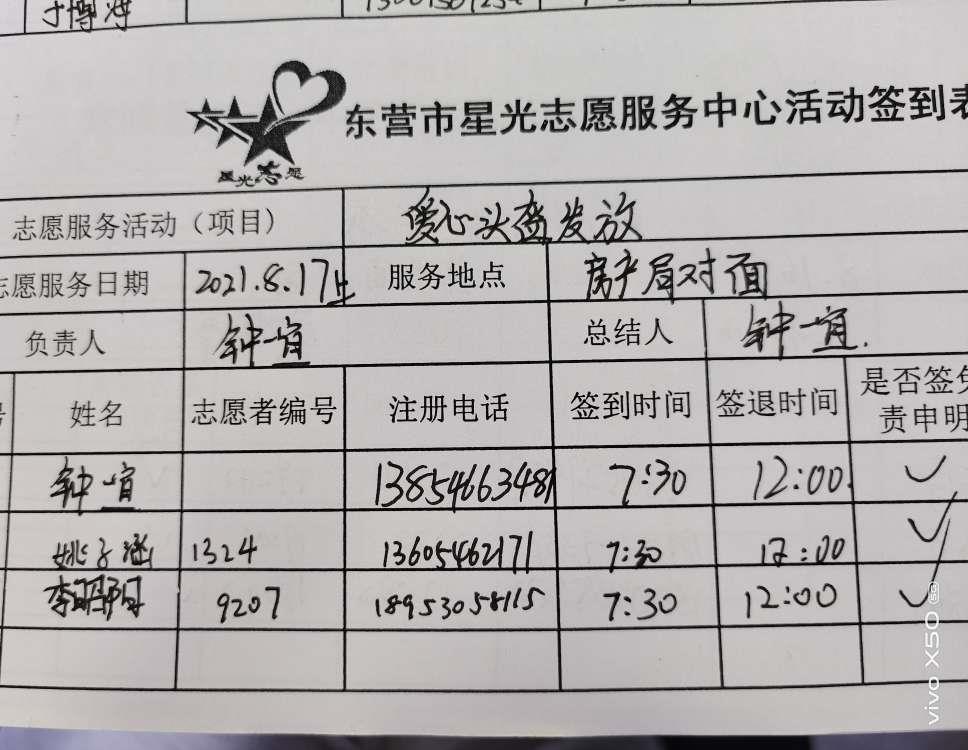 东营市星光志愿服务中心活动签到表
星光志愿
志愿服务活动（项目） 爱心头盔发放
志愿服务日期 2021.8.17上 服务地点 房产局对面
负责人 钟一宣 总结人 钟一宣.
姓名 志愿者编号 注册电话 签到时间 签退时间 是否签免
责申明
钟一宣 13854663481 7:30 12:00.
姚子涵 1324 13605462171 7:30 12:00
9207 18953058115 7:30 12:00
vivo X50 5G